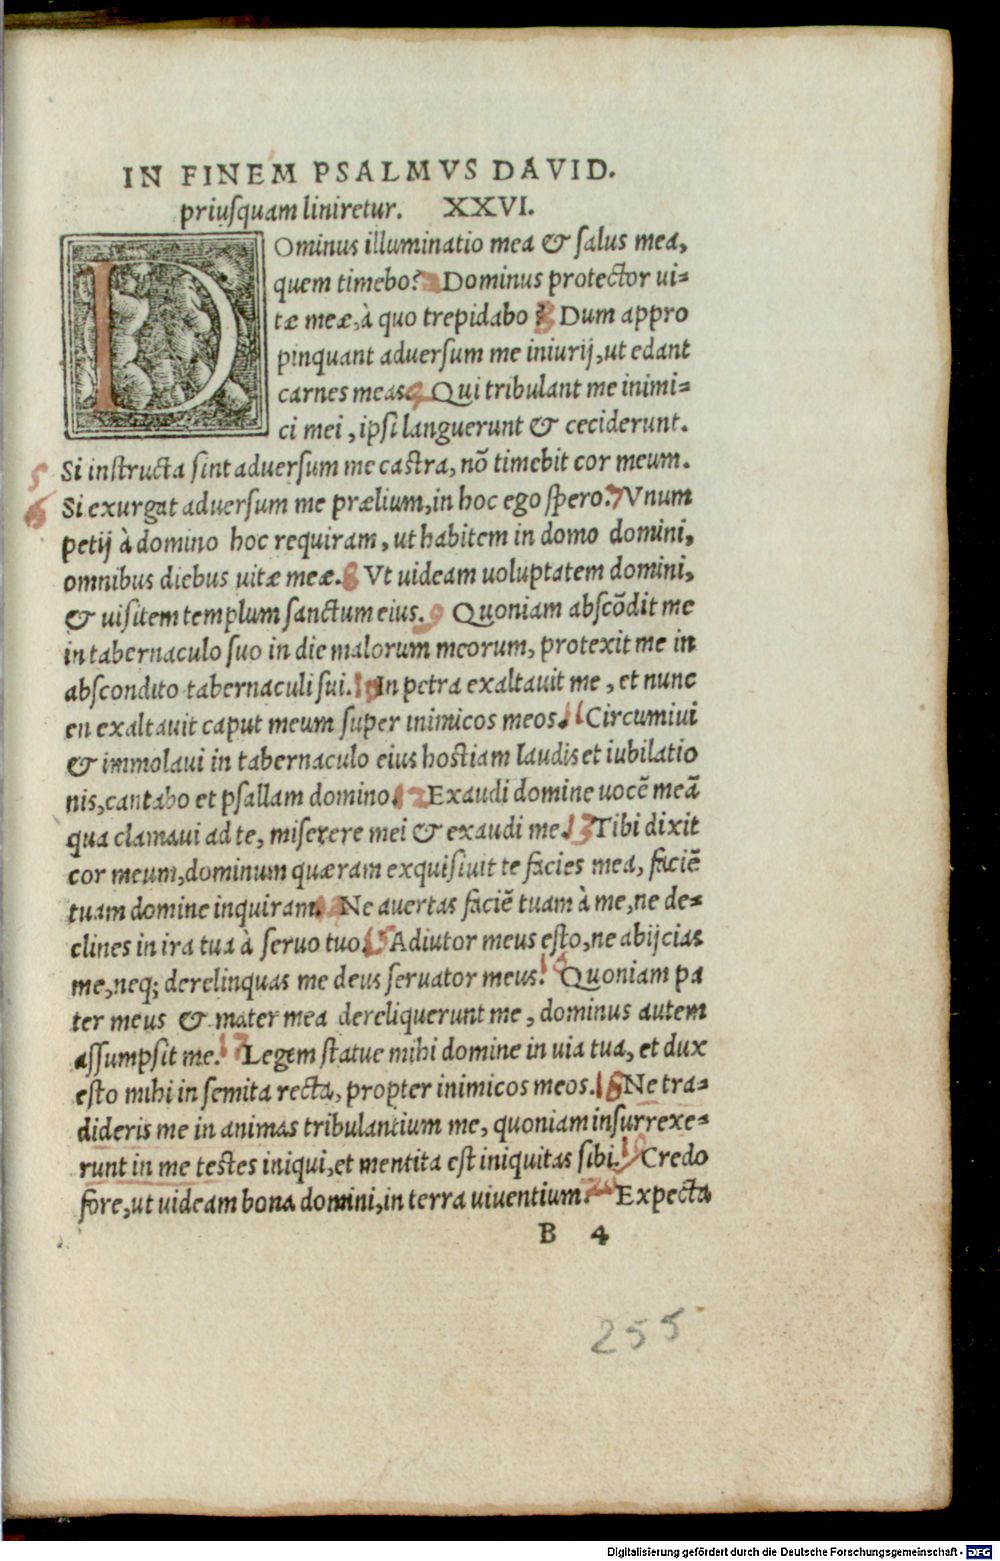 IN FINEM PSALMVS DAVID.
priuſquam liniretur. XXVI.
DOminus illuminatio mea & ſalus mea,
quem timebo? 2 Dominus protector ui=
tæ meæ, à quo trepidabo? 3 Dum appro
pinquant aduerſum me iniurij, ut edant
carnes meas. 4 Qui tribulant me inimi=
ci mei, ipſi languerunt & ceciderunt.
5 Si inſtructa ſint aduerſum me caſtra, nō timebit cor meum.
6 Si exurgat aduerſum me prælium, in hoc ego ſpero. 7 Vnum
petij à domino hoc requiram, ut habitem in domo domini,
omnibus diebus uitæ meæ. 8 Vt uideam uoluptatem domini,
& uiſitem templum ſanctum eius. 9 Quoniam abſcōdit me
in tabernaculo ſuo in die malorum meorum, protexit me in
abſcondito tabernaculi ſui. 10 In petra exaltauit me, et nunc
en exaltauit caput meum ſuper inimicos meos. 11 Circumiui
& immolaui in tabernaculo eius hoſtiam laudis et iubilatio
nis, cantabo et pſallam domino. 12 Exaudi domine uocē meā
qua clamaui ad te, miſerere mei & exaudi me. 13 Tibi dixit
cor meum, dominum quæram exquiſiuit te facies mea, faciē
tuam domine inquiram. 14 Ne auertas faciē tuam à me, ne de=
clines in ira tua à ſeruo tuo. 15 Adiutor meus eſto, ne abijcias
me, neq; derelinquas me deus ſeruator meus. 16 Quoniam pa
ter meus & mater mea dereliquerunt me, dominus autem
aſſumpſit me. 17 Legem ſtatue mihi domine in uia tua, et dux
eſto mihi in ſemita recta, propter inimicos meos. 18 Ne tra=
dideris me in animas tribulantium me, quoniam inſurrexe=
runt in me teſtes iniqui, et mentita eſt iniquitas ſibi. 19 Credo
fore, ut uideam bona domini, in terra uiuentium. 20 Expecta
B 4
255
Digitalisierung gefördert durch die Deutsche Forschungsgemeinschaft - DFG